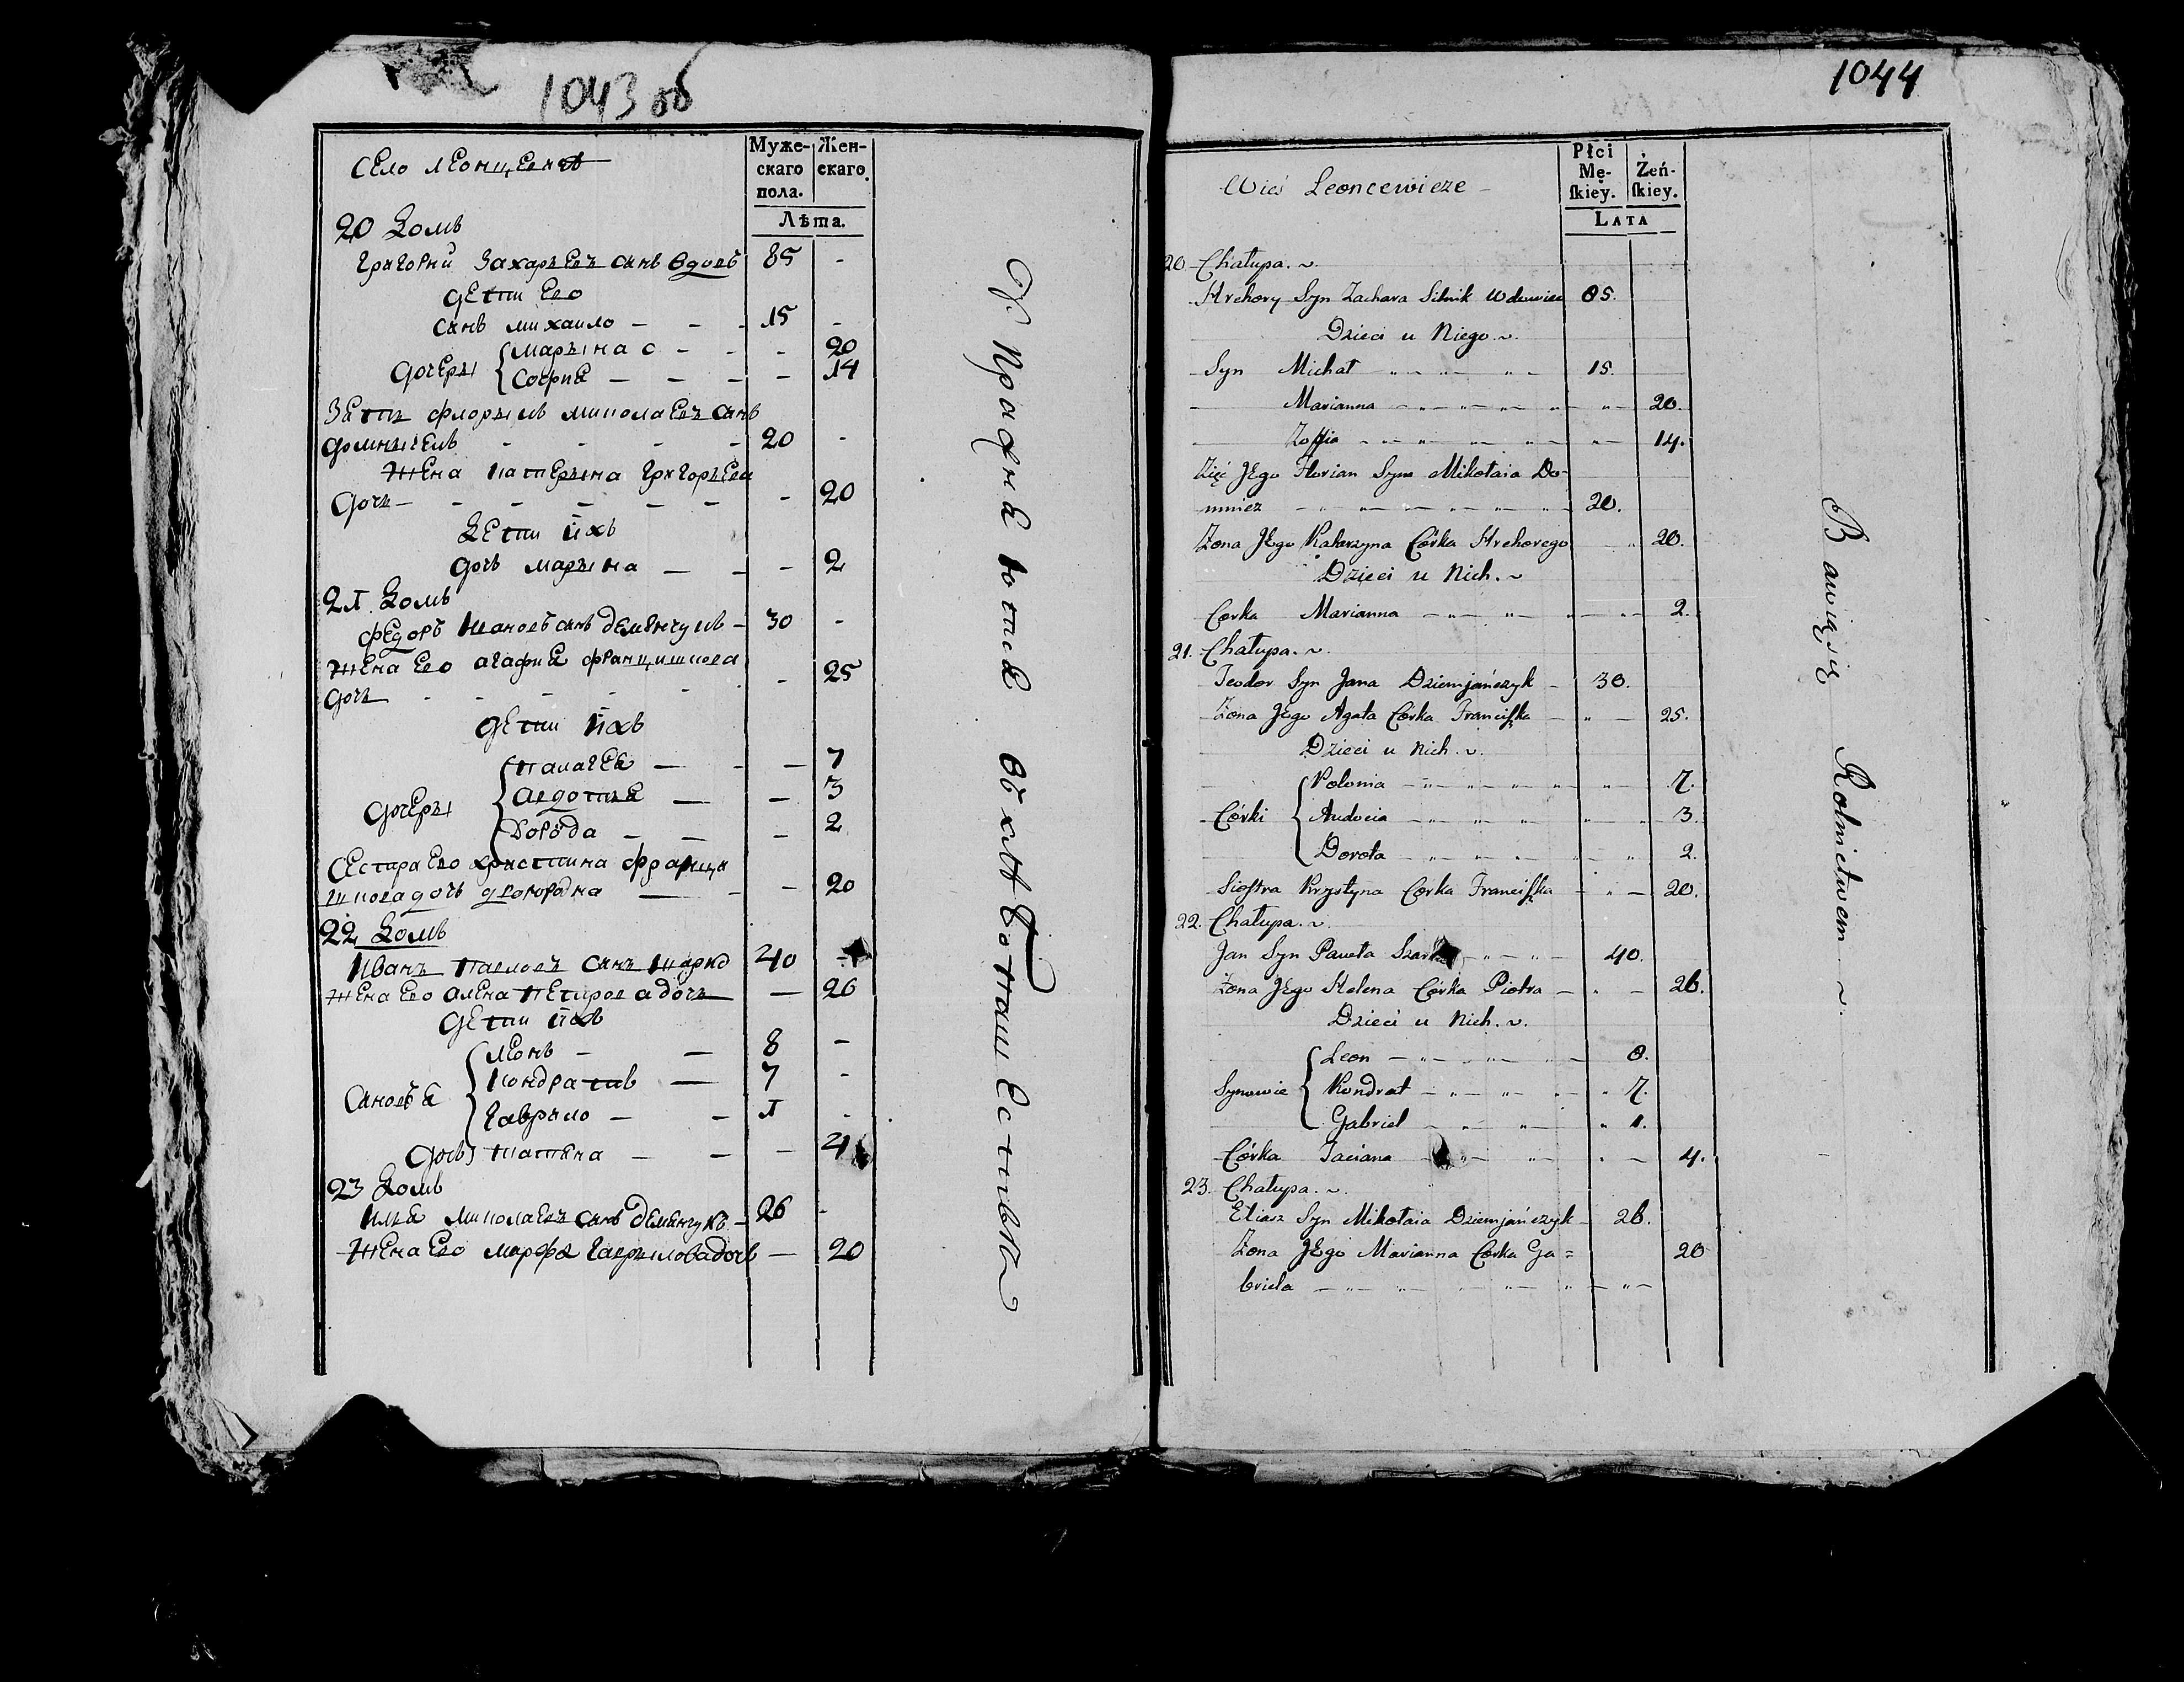 1043 об
Село Леонцевичъ
Муже-
скаго
пола.
Жен-
скаго.
Лѣта.
20 Домъ
Григорий Захарьевъ синъ вдовъ 85 -
дети Ево
синъ михаило - - - 15 -
дочеры { марына - - - 20
София - - - - 14
Зеть флорыянъ миколаевъ синъ
- - - - 20 -
жена катерына Григорьева
дочь - - - - - - - 20
Дети ихъ
дочь марына - - - 2
21 Домъ
федоръ Ивановъ синъ демянчукъ - 30 -
жена Ево агафия францишкова
дочь - - - - - - 25
дети ихъ
дочеры { палагея - - - 7
Авдотья - - 3
Дорода - - - 2
Сестра Ево христина франци
шкова дочь - - - 20
22 Домъ
Иванъ Павловъ синъ шарко 40 -
жена Ево алена Петрова дочь - 26
дети ихъ
Синовья { Леонъ - - 8 -
Кондратъ - 7 -
Гаврыло - - 1 -
дочь татяна - - - 4
23 Домъ
илья миколаевъ синъ демянчукъ - 26 -
жена Ево марфа Гаврыловадочъ - 20
1044
Wieś Leoncewicze -
Płci
Mę-
ſkiey.
Żeń-
ſkiey.
LATA
20 Chałupa. ~
Hrehory Syn Zachara Silnik Wdowiec 85.
Dzieci u Niego. ~
Syn Michał 15.
Marianna 20.
Zoffia 14.
Zięć JEgo Florian Syn Mikołaia Do-
minicz 20.
Żona JEgo Katarzyna Córka Hrehorego 20.
Dzieci u Nich. ~
Corka Marianna 2.
21. Chałupa. ~
Teodor Syn Jana Dziemjańczyk - 30.
Żona JEgo Agata Corka Franciſzka - 25.
Dzieci u Nich. ~
Córki { Polonia 7.
Audocia 3.
Dorota 2.
Sioſtra Krzystyna Corka Franciſzka 20.
22. Chałupa. ~
Jan Syn Pawła 40.
Żona JEgo Helena Córka Piotra - 26.
Dzieci u Nich. ~
Synowie { Leon 8.
Kondrat 7.
Gabriel 1.
Córka Taciana 4.
23. Chałupa. ~
Eliasz Syn Mikołaia Dziemjańczyk - 26.
Żona JEgo Marianna Corka Ga= 20
briela
Bawią się Rolnictwem ~